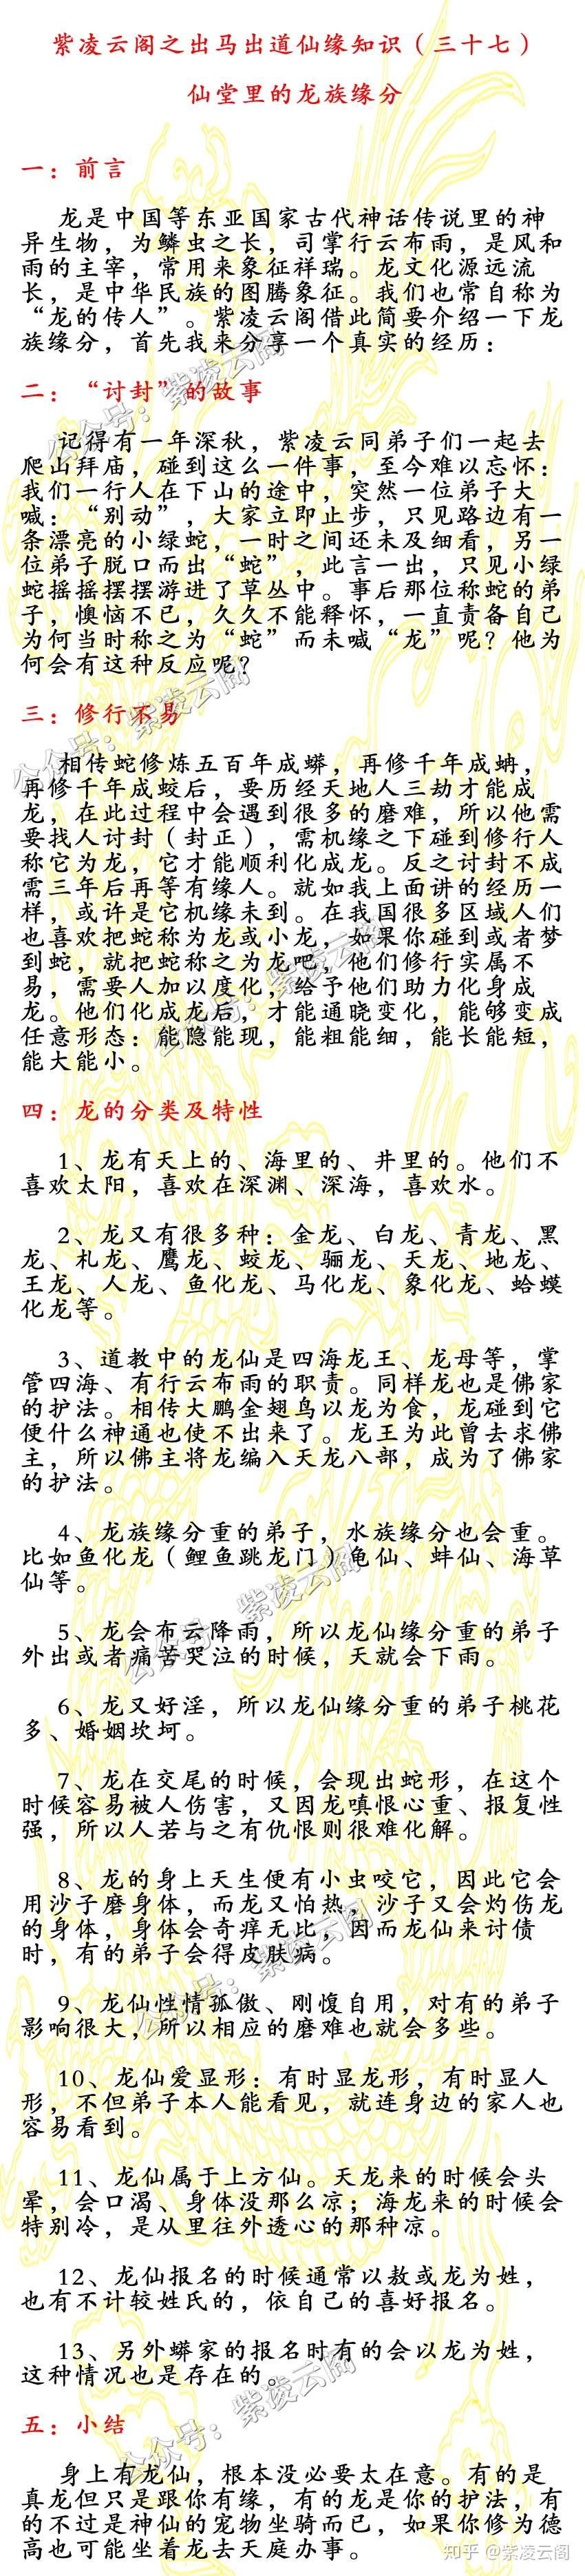 紫凌云阁之出马出道仙缘知识（三十七）
仙堂里的龙族缘分
一：前言
龙是中国等东亚国家古代神话传说里的神
异生物，为鳞虫之长，司掌行云布雨，是风和
雨的主宰，常用来象征祥瑞。龙文化源远流
长，是中华民族的图腾象征。我们也常自称为
“龙的传人”。紫凌云阁借此简要介绍一下龙
族缘分，首先我来分享一个真实的经历：
二：“讨封”的故事
记得有一年深秋，紫凌云同弟子们一起去
爬山拜庙，碰到这么一件事，至今难以忘怀：
我们一行人在下山的途中，突然一位弟子大
喊：“别动”，大家立即止步，只见路边有一
条漂亮的小绿蛇，一时之间还未及细看，另一
位弟子脱口而出“蛇”，此言一出，只见小绿
蛇摇摇摆摆游进了草丛中。事后那位称蛇的弟
子，懊恼不已，久久不能释怀，一直责备自己
为何当时称之为“蛇”而未喊“龙”呢？他为
何会有这种反应呢？
三：修行不易
相传蛇修炼五百年成蟒，再修千年成蚺，
再修千年成蛟后，要历经天地人三劫才能成
龙，在此过程中会遇到很多的磨难，所以他需
要找人讨封（封正），需机缘之下碰到修行人
称它为龙，它才能顺利化成龙。反之讨封不成
需三年后再等有缘人。就如我上面讲的经历一
样，或许是它机缘未到。在我国很多区域人们
也喜欢把蛇称为龙或小龙，如果你碰到或者梦
到蛇，就把蛇称之为龙吧，他们修行实属不
易，需要人加以度化，给予他们助力化身成
龙。他们化成龙后，才能通晓变化，能够变成
任意形态：能隐能现，能粗能细，能长能短，
能大能小。
四：龙的分类及特性
1、龙有天上的、海里的、井里的。他们不
喜欢太阳，喜欢在深渊、深海，喜欢水。
2、龙又有很多种：金龙、白龙、青龙、黑
龙、札龙、鹰龙、蛟龙、骊龙、天龙、地龙、
王龙、人龙、鱼化龙、马化龙、象化龙、蛤蟆
化龙等。
3、道教中的龙仙是四海龙王、龙母等，掌
管四海、有行云布雨的职责。同样龙也是佛家
的护法。相传大鹏金翅鸟以龙为食，龙碰到它
便什么神通也使不出来了。龙王为此曾去求佛
主，所以佛主将龙编入天龙八部，成为了佛家
的护法。
4、龙族缘分重的弟子，水族缘分也会重。
比如鱼化龙（鲤鱼跳龙门）龟仙、蚌仙、海草
仙等。
5、龙会布云降雨，所以龙仙缘分重的弟子
外出或者痛苦哭泣的时候，天就会下雨。
6、龙又好淫，所以龙仙缘分重的弟子桃花
多、婚姻坎坷。
7、龙在交尾的时候，会现出蛇形，在这个
时候容易被人伤害，又因龙嗔恨心重、报复性
强，所以人若与之有仇恨则很难化解。
8、龙的身上天生便有小虫咬它，因此它会
用沙子磨身体，而龙又怕热，沙子又会灼伤龙
的身体，身体会奇痒无比，因而龙仙来讨债
时，有的弟子会得皮肤病。
9、龙仙性情孤傲、刚愎自用，对有的弟子
影响很大，所以相应的磨难也就会多些。
10、龙仙爱显形：有时显龙形，有时显人
形，不但弟子本人能看见，就连身边的家人也
容易看到。
11、龙仙属于上方仙。天龙来的时候会头
晕，会口渴、身体没那么凉；海龙来的时候会
特别冷，是从里往外透心的那种凉。
12、龙仙报名的时候通常以敖或龙为姓，
也有不计较姓氏的，依自己的喜好报名。
13、另外蟒家的报名时有的会以龙为姓，
这种情况也是存在的。
五：小结
身上有龙仙，根本没必要太在意。有的是
真龙但只是跟你有缘，有的龙是你的护法，有
的不过是神仙的宠物坐骑而已，如果你修为德
高也可能坐着龙去天庭办事。
公众号：紫凌云阁
公众号：紫凌云阁
公众号：紫凌云阁
公众号：紫凌云阁
公众号：紫凌云阁
公众号：紫凌云阁
知乎 @紫凌云阁